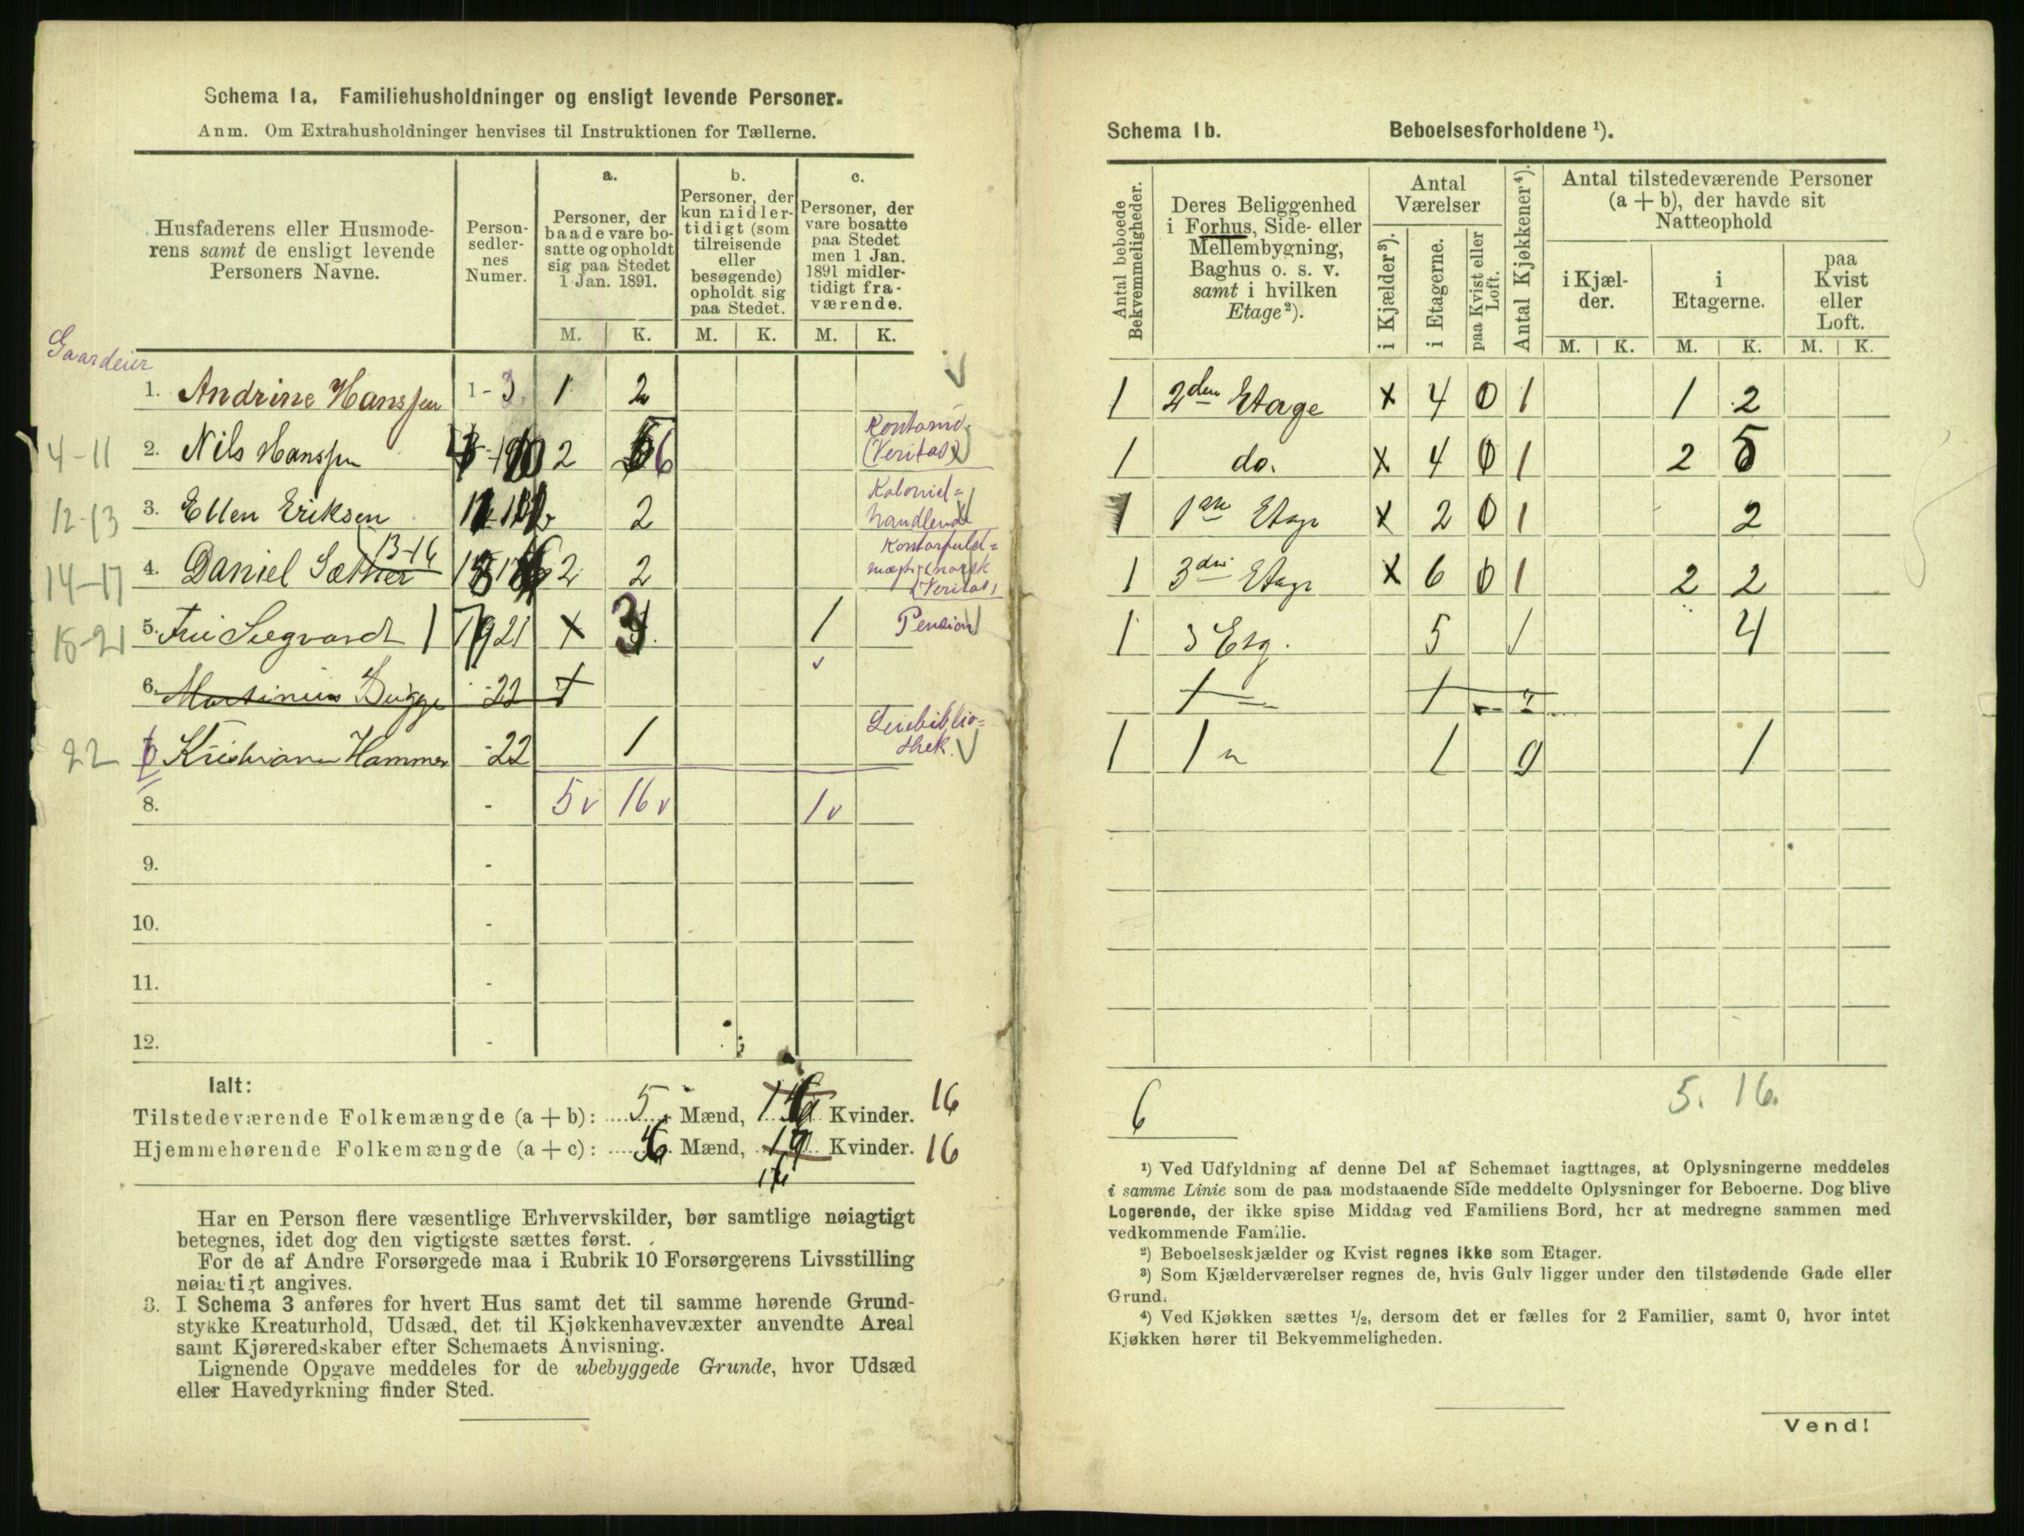 Schema 1a. Familiehusholdninger og ensligt levende Personer.
Anm. Om Extrahusholdninger henvises til Instruktionen for Tællerne.
Husfaderens eller Husmoderens samt de ensligt levende Personers Navne.
Personsedlernes Numer.
a.
Personer, der baade vare bosatte og opholdt sig paa Stedet 1 Jan. 1891.
b.
Personer, der kun midlertidigt (som tilreisende eller besøgende) opholdt sig paa Stedet.
c.
Personer, der vare bosatte paa Stedet men 1 Jan. 1891 midlertidigt fraværende.
M. K. M. K. M. K.
Gaardeier
1. Andrine Hanssen 1-3 1 2
4-11 2. Nils Hanssen 2 6 (Veritas)
12-13 3. Ellen Eriksen 2 Kolonialhandlende
14-17 4. Daniel Sæther 13-16 2 2 (Veritas)
18-21 5. 21 x 3 1 Pension
6. Martinius Bugge -22
22 6 Kristiane Hammer -22 1 Leiebibliothek.
8. - 5 v 16 v 1 v
9. -
10. -
11. -
12. -
Ialt:
Tilstedeværende Folkemængde (a + b): 5 Mænd, Kvinder. 16
Hjemmehørende Folkemængde (a + c): 6 Mænd, Kvinder. 16
16
Har en Person flere væsentlige Erhvervskilder, bør samtlige nøiagtigt
betegnes, idet dog den vigtigste sættes først.
For de af Andre Forsørgede maa i Rubrik 10 Forsørgerens Livsstilling
nøiagtigt angives.
3. I Schema 3 anføres for hvert Hus samt det til samme hørende Grund-
stykke Kreaturhold, Udsæd, det til Kjøkkenhavevæxter anvendte Areal
samt Kjøreredskaber efter Schemaets Anvisning.
Lignende Opgave meddeles for de ubebyggede Grunde, hvor Udsæd
eller Havedyrkning finder Sted.
Schema 1b. Beboelsesforholdene ¹).
Antal beboede Bekvemmeligheder.
Deres Beliggenhed i Forhus, Side- eller Mellembygning, Baghus o. s. v. samt i hvilken Etage²).
Antal Værelser
i Kjælder³).
i Etagerne.
paa Kvist eller Loft.
Antal Kjøkkener⁴).
Antal tilstedeværende Personer (a + b), der havde sit Natteophold
i Kjælder.
i Etagerne.
paa Kvist eller Loft.
M. K. M. K. M. K.
1 2den Etage x 4 0 1 1 2
1 do. x 4 0 1 2 5
1 1ste Etage x 2 0 1 2
1 3die Etage x 6 0 1 2 2
1 3 Etg. 5 1 4
1 1 " 1 0 1
6
5. 16.
¹) Ved Udfyldning af denne Del af Schemaet iagttages, at Oplysningerne meddeles
i samme Linie som de paa modstaaende Side meddelte Oplysninger for Beboerne. Dog blive
Logerende, der ikke spise Middag ved Familiens Bord, her at medregne sammen med
vedkommende Familie.
²) Beboelseskjælder og Kvist regnes ikke som Etager.
³) Som Kjælderværelser regnes de, hvis Gulv ligger under den tilstødende Gade eller
Grund.
⁴) Ved Kjøkken sættes ½, dersom det er fælles for 2 Familier, samt 0, hvor intet
Kjøkken hører til Bekvemmeligheden.
Vend!